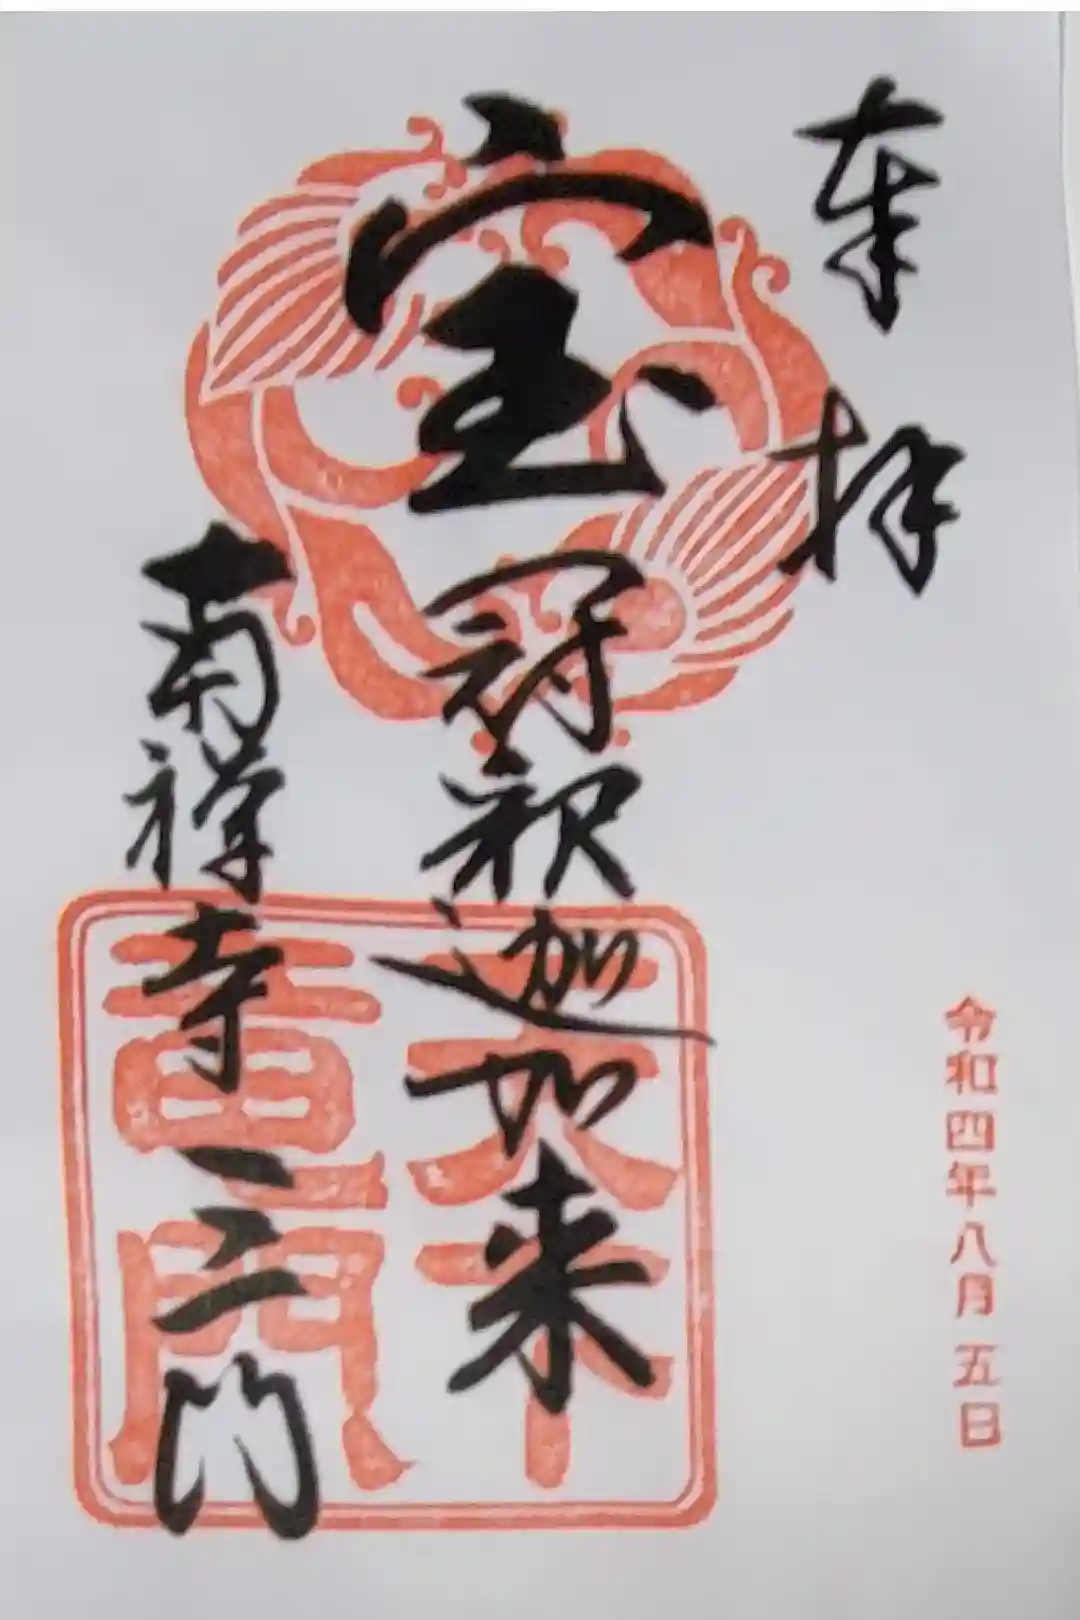 奉拝
令和四年八月五日
宝冠釈迦如来
南禅寺三門
天下
竜門